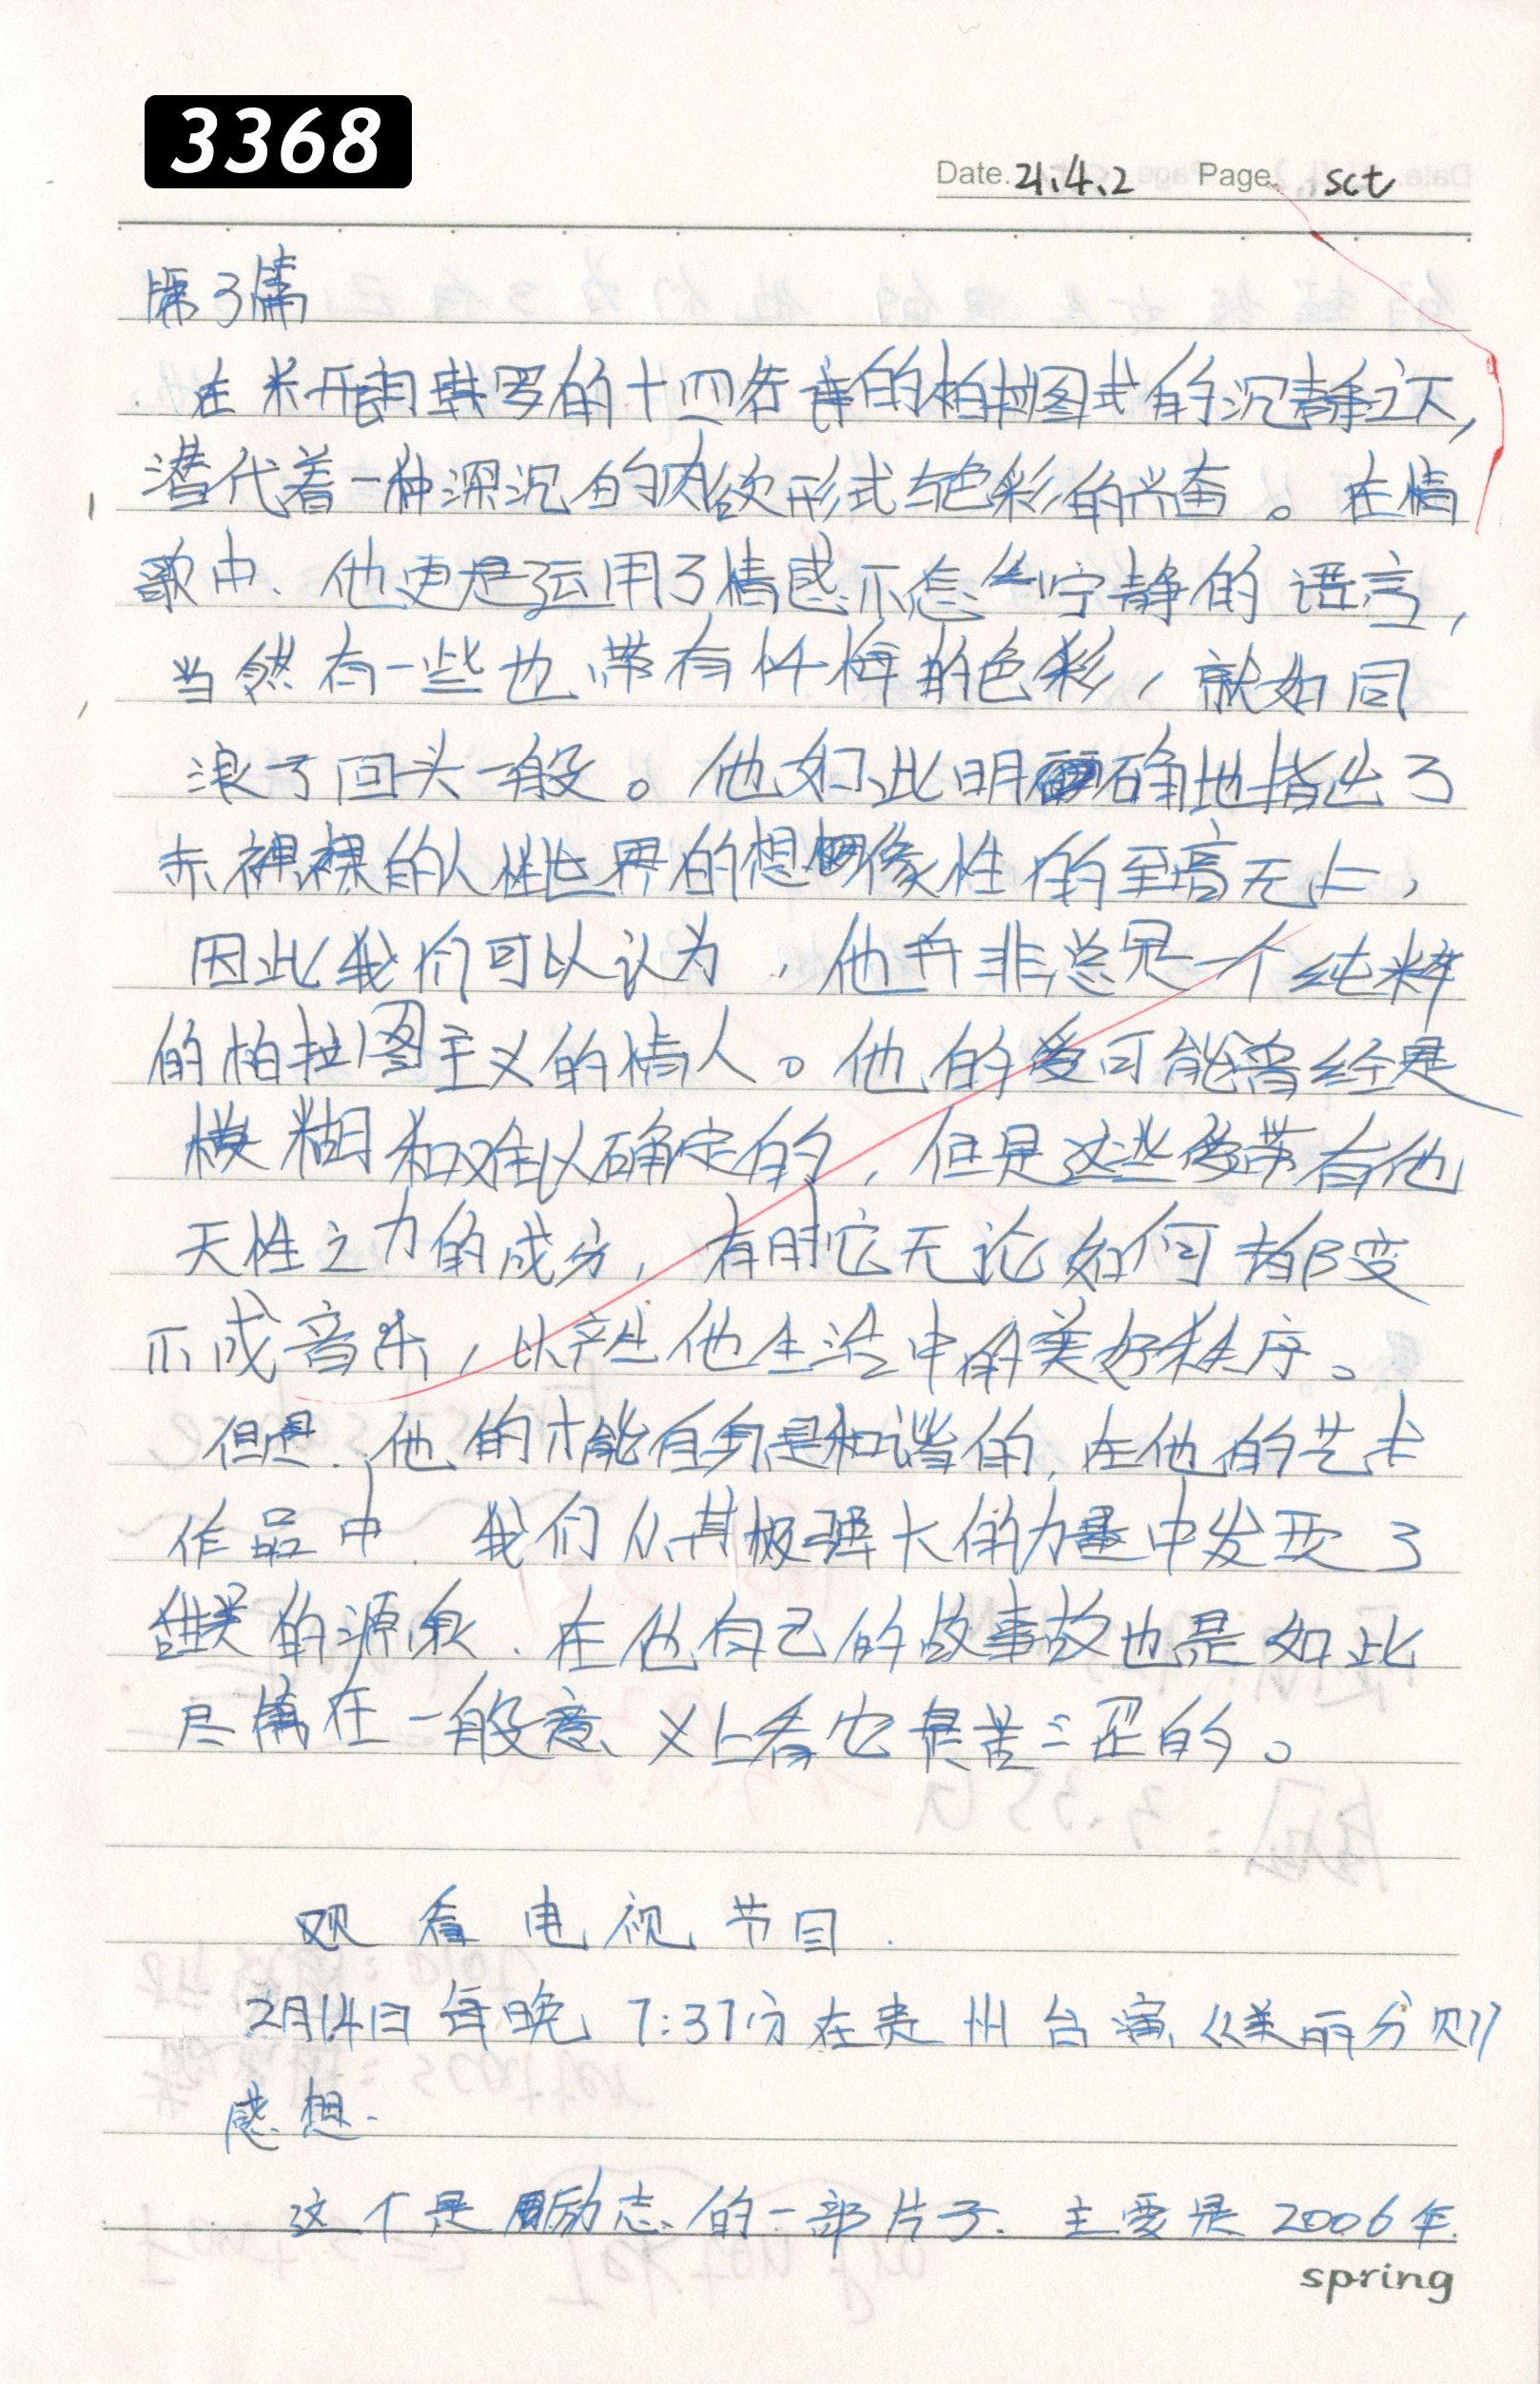 3368
Date. 21.4.2 Page. sct
第3篇
在米开朗琪罗的十四行诗的柏拉图式的沉静之下,
潜伏着一种深沉的肉欲形式与色彩的兴奋。在情
歌中、他更是运用了情感不怎么宁静的语言,
当然有一些也带有忏悔的色彩,就如同
浪子回头一般。他如此明确地指出了
赤裸裸的人性世界的想像性的至高无上,
因此我们可以认为,他并非总是一个纯粹
的柏拉图主义的情人。他的爱可能曾经是
模糊和难以确定的,但是这些爱带有他
天性之力的成分,有时它无论如何都变
不成音乐,以产生他生活中的美好秩序。
但是、他的才能自身是和谐的,在他的艺术
作品中.我们从其极强大的力量中发现了
甜美的源泉.在他自己的故事故也是如此
尽管在一般意义上看它是苦涩的。
观看电视节目.
2月14日每晚7:37分在贵州台演《美丽分贝》
感想.
这个是励志的一部片子.主要是2006年
spring